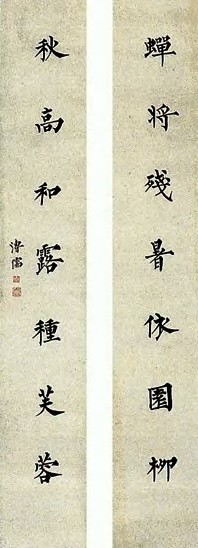 蟬将殘暑依園柳
秋高和露種芙蓉
溥儒